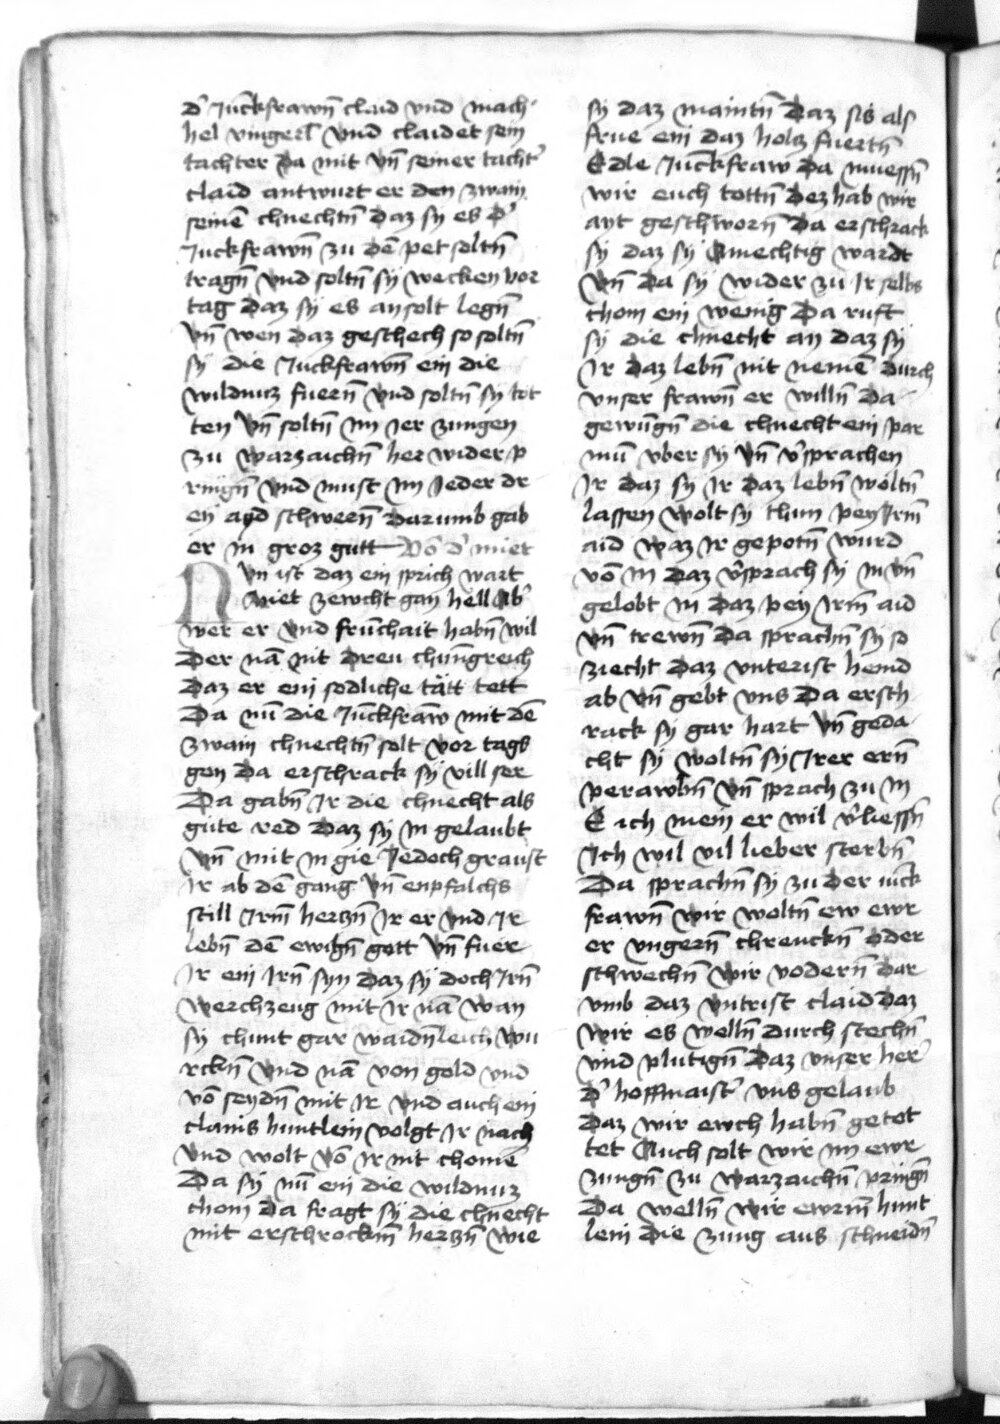 d' Junckfrawn̄ claid vnd mach
hel vingerl vnd claidet sein
tachter da mit vn̄ seiner tacht'
claid antwurt er den zwain
seinē chnechtn̄ daz sy es d'
Junckfrawn̄ zu dē pet soltn̄
tragn̄ vnd soltn̄ sy wecken vor
tag daz sy es an solt legn̄
vn̄ wen daz geschech so soltn̄
sy die Junckfrawn̄ ein die
wildnuz fuern̄ vnd soltn̄ sy tot
ten vn̄ soltn̄ im jer zungen
zu warzaichn̄ her wider p
ringn̄ vnd must im jeder dr
en ayd schwern̄ darumb gab
er in groz gutt Vō d' miet
Nvn ist daz ein sprich wart
Miet zewcht gan hell ab'
wer er vnd frūchait habn̄ wil
Der nā nit dreu chūngreich
Daz er ein sodliche tätt tett
Da nū die Jūckfraw mit dē
zwain chnechtn̄ solt vor tags
gen da erschrack sy vill ser
Da gabn̄ Jr die chnecht als
gute red daz sy in gelaubt
vn̄ mit in gie Jedoch graust
Jr ab dē gang vn̄ enpfalchs
still Jrm̄ herzn̄ Jr er vnd Jr
lebn̄ dē ewign̄ gott vn̄ fuer
Jr ein Jrn̄ syn daz sy doch Jrn̄
werchzeug mit Jr nā wan
sy chunt gar waidnleich wu
rckn̄ vnd nā von gold vnd
vō seydn̄ mit Jr vnd auch ein
clains huntlein volgt Jr nach
vnd wolt vō Jr nit chomē
Da sy nū ein die wildnuz
chom da fragt sy die chnecht
mit erschrockm̄ herzn̄ wie
sy daz maintn̄ daz sis als
frue ein daz holz fuertn̄
Edle Junckfraw da muessn̄
wir euch tottn̄ dez hab wir
ayt geschworn̄ da erschrack
sy daz sy amechtig wardt
vn̄ da sy wider zu Jr selbs
chom ein wenig da ruft
sy die chnecht an daz sy
Jr daz lebn̄ nit nemē durch
vnser frawn̄ er willn̄ da
gewūgn̄ die chnecht ein par
mū vber sy vn̄ v'sprachen
Jr daz sy Jr daz lebn̄ woltn̄
lassen wolt sy thun pey Jrm̄
aid waz Jr gepotn̄ wurd
vō in daz v'sprach sy in vn̄
gelobt in daz pey Jrm̄ aid
vn̄ trewn̄ da sprachn̄ sy so
ziecht daz vnterist hemd
ab vn̄ gebt vns da ersch
rack sy gar hart vn̄ geda
cht sy woltn̄ sy Jrer ern̄
perawbn̄ vn̄ sprach zu in
E ich mein er wil v'liessn̄
Jch wil vil lieber sterbn̄
Da sprachn̄ sy zu der iuck
frawn̄ wir woltn̄ ew ewr
er vngern̄ chrenckn̄ oder
schwechn̄ wir vodern̄ dar
vmb daz vntrist claid daz
wir es welln̄ durch stechn̄
vnd plutign̄ daz vnser her'
d' hoffmaist' vns gelaub
daz wir ewch habn̄ getot
tet Auch solt wir im ewr
zungn̄ zu warzaichn̄ pringn̄
Da welln̄ wir ewrm̄ hunt
lein die zung aus schneidn̄